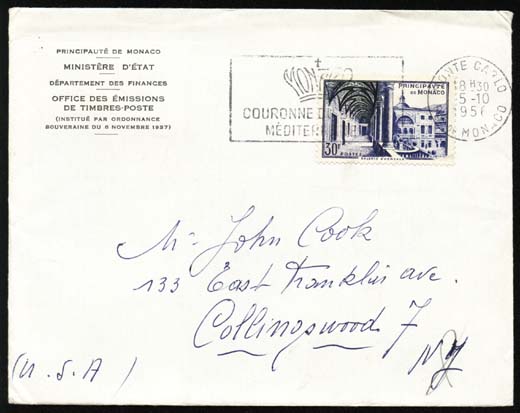 PRINCIPAUTÉ DE MONACO
MINISTÈRE D'ÉTAT
DÉPARTEMENT DES FINANCES
OFFICE DES ÉMISSIONS
DE TIMBRES-POSTE
(INSTITUÉ PAR ORDONNANCE
SOUVERAINE DU 8 NOVEMBRE 1937)
MONACO
COURONNE D
MÉDITER
PRINCIPAUTÉ
DE MONACO
30F
POSTES
GALERIE D'HERCULE
MONTE CARLO
18H30
5-10
1956
MONACO
Mr John Cook
133 East Franklin ave.
Collingswood 7
NJ
(U.S.A)